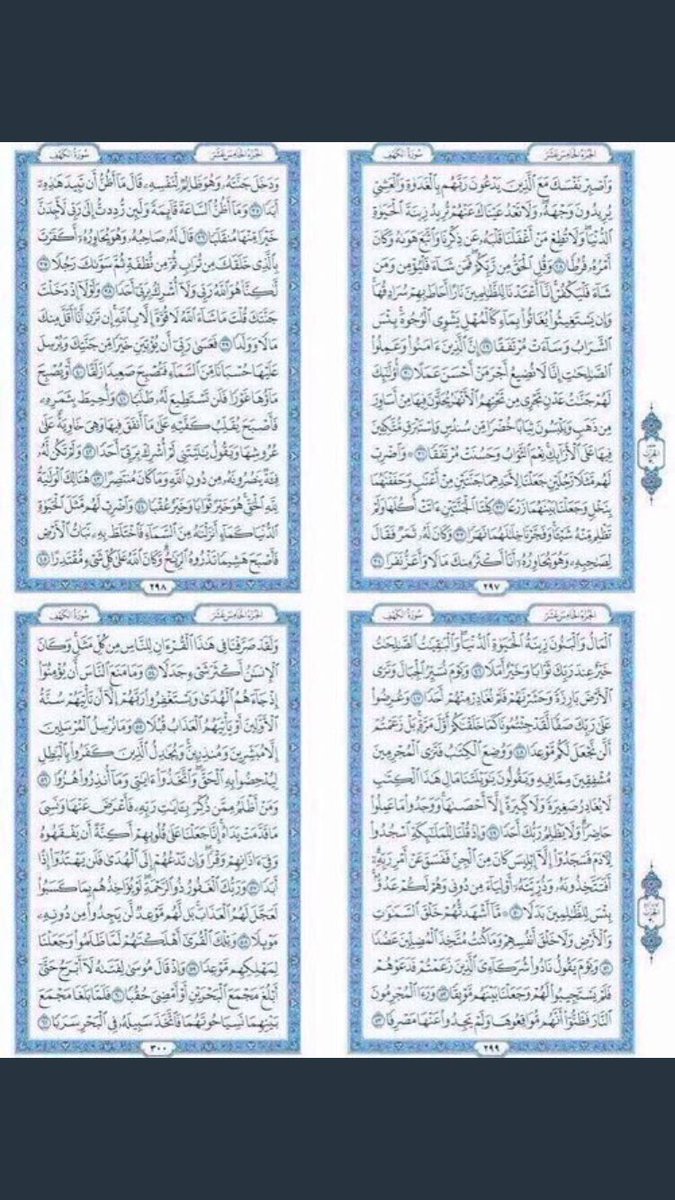 الجزء الخامس عشر
سورة الكهف
وَٱصْبِرْ نَفْسَكَ مَعَ ٱلَّذِينَ يَدْعُونَ رَبَّهُم بِٱلْغَدَوٰةِ وَٱلْعَشِىِّ
يُرِيدُونَ وَجْهَهُۥ وَلَا تَعْدُ عَيْنَاكَ عَنْهُمْ تُرِيدُ زِينَةَ ٱلْحَيَوٰةِ
ٱلدُّنْيَا وَلَا تُطِعْ مَنْ أَغْفَلْنَا قَلْبَهُۥ عَن ذِكْرِنَا وَٱتَّبَعَ هَوَىٰهُ وَكَانَ
أَمْرُهُۥ فُرُطًا ٢٨ وَقُلِ ٱلْحَقُّ مِن رَّبِّكُمْ فَمَن شَآءَ فَلْيُؤْمِن وَمَن
شَآءَ فَلْيَكْفُرْ إِنَّآ أَعْتَدْنَا لِلظَّٰلِمِينَ نَارًا أَحَاطَ بِهِمْ سُرَادِقُهَا
وَإِن يَسْتَغِيثُوا۟ يُغَاثُوا۟ بِمَآءٍ كَٱلْمُهْلِ يَشْوِى ٱلْوُجُوهَ بِئْسَ
ٱلشَّرَابُ وَسَآءَتْ مُرْتَفَقًا ٢٩ إِنَّ ٱلَّذِينَ ءَامَنُوا۟ وَعَمِلُوا۟
ٱلصَّٰلِحَٰتِ إِنَّا لَا نُضِيعُ أَجْرَ مَنْ أَحْسَنَ عَمَلًا ٣٠ أُو۟لَٰٓئِكَ
لَهُمْ جَنَّٰتُ عَدْنٍ تَجْرِى مِن تَحْتِهِمُ ٱلْأَنْهَٰرُ يُحَلَّوْنَ فِيهَا مِنْ أَسَاوِرَ
مِن ذَهَبٍ وَيَلْبَسُونَ ثِيَابًا خُضْرًا مِّن سُندُسٍ وَإِسْتَبْرَقٍ مُّتَّكِـِٔينَ
فِيهَا عَلَى ٱلْأَرَآئِكِ نِعْمَ ٱلثَّوَابُ وَحَسُنَتْ مُرْتَفَقًا ٣١ ۞ وَٱضْرِبْ
لَهُم مَّثَلًا رَّجُلَيْنِ جَعَلْنَا لِأَحَدِهِمَا جَنَّتَيْنِ مِنْ أَعْنَٰبٍ وَحَفَفْنَٰهُمَا
بِنَخْلٍ وَجَعَلْنَا بَيْنَهُمَا زَرْعًا ٣٢ كِلْتَا ٱلْجَنَّتَيْنِ ءَاتَتْ أُكُلَهَا وَلَمْ
تَظْلِم مِّنْهُ شَيْـًٔا وَفَجَّرْنَا خِلَٰلَهُمَا نَهَرًا ٣٣ وَكَانَ لَهُۥ ثَمَرٌ فَقَالَ
لِصَٰحِبِهِۦ وَهُوَ يُحَاوِرُهُۥٓ أَنَا۠ أَكْثَرُ مِنكَ مَالًا وَأَعَزُّ نَفَرًا ٣٤
٢٩٧
الجزء الخامس عشر
سورة الكهف
وَدَخَلَ جَنَّتَهُۥ وَهُوَ ظَالِمٌ لِّنَفْسِهِۦ قَالَ مَآ أَظُنُّ أَن تَبِيدَ هَٰذِهِۦٓ
أَبَدًا ٣٥ وَمَآ أَظُنُّ ٱلسَّاعَةَ قَآئِمَةً وَلَئِن رُّدِدتُّ إِلَىٰ رَبِّى لَأَجِدَنَّ
خَيْرًا مِّنْهَا مُنقَلَبًا ٣٦ قَالَ لَهُۥ صَاحِبُهُۥ وَهُوَ يُحَاوِرُهُۥٓ أَكَفَرْتَ
بِٱلَّذِى خَلَقَكَ مِن تُرَابٍ ثُمَّ مِن نُّطْفَةٍ ثُمَّ سَوَّىٰكَ رَجُلًا ٣٧
لَّٰكِنَّا۠ هُوَ ٱللَّهُ رَبِّى وَلَآ أُشْرِكُ بِرَبِّىٓ أَحَدًا ٣٨ وَلَوْلَآ إِذْ دَخَلْتَ
جَنَّتَكَ قُلْتَ مَا شَآءَ ٱللَّهُ لَا قُوَّةَ إِلَّا بِٱللَّهِ إِن تَرَنِ أَنَا۠ أَقَلَّ مِنكَ
مَالًا وَوَلَدًا ٣٩ فَعَسَىٰ رَبِّىٓ أَن يُؤْتِيَنِ خَيْرًا مِّن جَنَّتِكَ وَيُرْسِلَ
عَلَيْهَا حُسْبَانًا مِّنَ ٱلسَّمَآءِ فَتُصْبِحَ صَعِيدًا زَلَقًا ٤٠ أَوْ يُصْبِحَ
مَآؤُهَا غَوْرًا فَلَن تَسْتَطِيعَ لَهُۥ طَلَبًا ٤١ وَأُحِيطَ بِثَمَرِهِۦ
فَأَصْبَحَ يُقَلِّبُ كَفَّيْهِ عَلَىٰ مَآ أَنفَقَ فِيهَا وَهِىَ خَاوِيَةٌ عَلَىٰ
عُرُوشِهَا وَيَقُولُ يَٰلَيْتَنِى لَمْ أُشْرِكْ بِرَبِّىٓ أَحَدًا ٤٢ وَلَمْ تَكُن لَّهُۥ
فِئَةٌ يَنصُرُونَهُۥ مِن دُونِ ٱللَّهِ وَمَا كَانَ مُنتَصِرًا ٤٣ هُنَالِكَ ٱلْوَلَٰيَةُ
لِلَّهِ ٱلْحَقِّ هُوَ خَيْرٌ ثَوَابًا وَخَيْرٌ عُقْبًا ٤٤ وَٱضْرِبْ لَهُم مَّثَلَ ٱلْحَيَوٰةِ
ٱلدُّنْيَا كَمَآءٍ أَنزَلْنَٰهُ مِنَ ٱلسَّمَآءِ فَٱخْتَلَطَ بِهِۦ نَبَاتُ ٱلْأَرْضِ
فَأَصْبَحَ هَشِيمًا تَذْرُوهُ ٱلرِّيَٰحُ وَكَانَ ٱللَّهُ عَلَىٰ كُلِّ شَىْءٍ مُّقْتَدِرًا ٤٥
٢٩٨
الجزء الخامس عشر
سورة الكهف
ٱلْمَالُ وَٱلْبَنُونَ زِينَةُ ٱلْحَيَوٰةِ ٱلدُّنْيَا وَٱلْبَٰقِيَٰتُ ٱلصَّٰلِحَٰتُ
خَيْرٌ عِندَ رَبِّكَ ثَوَابًا وَخَيْرٌ أَمَلًا ٤٦ وَيَوْمَ نُسَيِّرُ ٱلْجِبَالَ وَتَرَى
ٱلْأَرْضَ بَارِزَةً وَحَشَرْنَٰهُمْ فَلَمْ نُغَادِرْ مِنْهُمْ أَحَدًا ٤٧ وَعُرِضُوا۟
عَلَىٰ رَبِّكَ صَفًّا لَّقَدْ جِئْتُمُونَا كَمَا خَلَقْنَٰكُمْ أَوَّلَ مَرَّةٍۭ بَلْ زَعَمْتُمْ
أَلَّن نَّجْعَلَ لَكُم مَّوْعِدًا ٤٨ وَوُضِعَ ٱلْكِتَٰبُ فَتَرَى ٱلْمُجْرِمِينَ
مُشْفِقِينَ مِمَّا فِيهِ وَيَقُولُونَ يَٰوَيْلَتَنَا مَالِ هَٰذَا ٱلْكِتَٰبِ
لَا يُغَادِرُ صَغِيرَةً وَلَا كَبِيرَةً إِلَّآ أَحْصَىٰهَا وَوَجَدُوا۟ مَا عَمِلُوا۟
حَاضِرًا وَلَا يَظْلِمُ رَبُّكَ أَحَدًا ٤٩ وَإِذْ قُلْنَا لِلْمَلَٰٓئِكَةِ ٱسْجُدُوا۟
لِءَادَمَ فَسَجَدُوٓا۟ إِلَّآ إِبْلِيسَ كَانَ مِنَ ٱلْجِنِّ فَفَسَقَ عَنْ أَمْرِ رَبِّهِۦٓ
أَفَتَتَّخِذُونَهُۥ وَذُرِّيَّتَهُۥٓ أَوْلِيَآءَ مِن دُونِى وَهُمْ لَكُمْ عَدُوٌّۢ
بِئْسَ لِلظَّٰلِمِينَ بَدَلًا ٥٠ ۞ مَّآ أَشْهَدتُّهُمْ خَلْقَ ٱلسَّمَٰوَٰتِ
وَٱلْأَرْضِ وَلَا خَلْقَ أَنفُسِهِمْ وَمَا كُنتُ مُتَّخِذَ ٱلْمُضِلِّينَ عَضُدًا
٥١ وَيَوْمَ يَقُولُ نَادُوا۟ شُرَكَآءِىَ ٱلَّذِينَ زَعَمْتُمْ فَدَعَوْهُمْ
فَلَمْ يَسْتَجِيبُوا۟ لَهُمْ وَجَعَلْنَا بَيْنَهُم مَّوْبِقًا ٥٢ وَرَءَا ٱلْمُجْرِمُونَ
ٱلنَّارَ فَظَنُّوٓا۟ أَنَّهُم مُّوَاقِعُوهَا وَلَمْ يَجِدُوا۟ عَنْهَا مَصْرِفًا ٥٣
٢٩٩
الجزء الخامس عشر
سورة الكهف
وَلَقَدْ صَرَّفْنَا فِى هَٰذَا ٱلْقُرْءَانِ لِلنَّاسِ مِن كُلِّ مَثَلٍ وَكَانَ
ٱلْإِنسَٰنُ أَكْثَرَ شَىْءٍ جَدَلًا ٥٤ وَمَا مَنَعَ ٱلنَّاسَ أَن يُؤْمِنُوٓا۟
إِذْ جَآءَهُمُ ٱلْهُدَىٰ وَيَسْتَغْفِرُوا۟ رَبَّهُمْ إِلَّآ أَن تَأْتِيَهُمْ سُنَّةُ
ٱلْأَوَّلِينَ أَوْ يَأْتِيَهُمُ ٱلْعَذَابُ قُبُلًا ٥٥ وَمَا نُرْسِلُ ٱلْمُرْسَلِينَ
إِلَّا مُبَشِّرِينَ وَمُنذِرِينَ وَيُجَٰدِلُ ٱلَّذِينَ كَفَرُوا۟ بِٱلْبَٰطِلِ
لِيُدْحِضُوا۟ بِهِ ٱلْحَقَّ وَٱتَّخَذُوٓا۟ ءَايَٰتِى وَمَآ أُنذِرُوا۟ هُزُوًا ٥٦
وَمَنْ أَظْلَمُ مِمَّن ذُكِّرَ بِـَٔايَٰتِ رَبِّهِۦ فَأَعْرَضَ عَنْهَا وَنَسِىَ
مَا قَدَّمَتْ يَدَاهُ إِنَّا جَعَلْنَا عَلَىٰ قُلُوبِهِمْ أَكِنَّةً أَن يَفْقَهُوهُ
وَفِىٓ ءَاذَانِهِمْ وَقْرًا وَإِن تَدْعُهُمْ إِلَى ٱلْهُدَىٰ فَلَن يَهْتَدُوٓا۟ إِذًا
أَبَدًا ٥٧ وَرَبُّكَ ٱلْغَفُورُ ذُو ٱلرَّحْمَةِ لَوْ يُؤَاخِذُهُم بِمَا كَسَبُوا۟
لَعَجَّلَ لَهُمُ ٱلْعَذَابَ بَل لَّهُم مَّوْعِدٌ لَّن يَجِدُوا۟ مِن دُونِهِۦ
مَوْئِلًا ٥٨ وَتِلْكَ ٱلْقُرَىٰٓ أَهْلَكْنَٰهُمْ لَمَّا ظَلَمُوا۟ وَجَعَلْنَا
لِمَهْلِكِهِم مَّوْعِدًا ٥٩ وَإِذْ قَالَ مُوسَىٰ لِفَتَىٰهُ لَآ أَبْرَحُ حَتَّىٰٓ
أَبْلُغَ مَجْمَعَ ٱلْبَحْرَيْنِ أَوْ أَمْضِىَ حُقُبًا ٦٠ فَلَمَّا بَلَغَا مَجْمَعَ
بَيْنِهِمَا نَسِيَا حُوتَهُمَا فَٱتَّخَذَ سَبِيلَهُۥ فِى ٱلْبَحْرِ سَرَبًا ٦١
٣٠٠